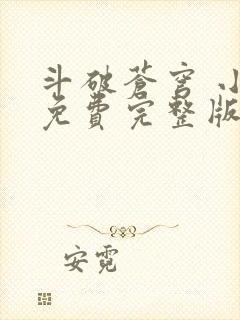 斗破苍穹 小
免費完整版
安霓